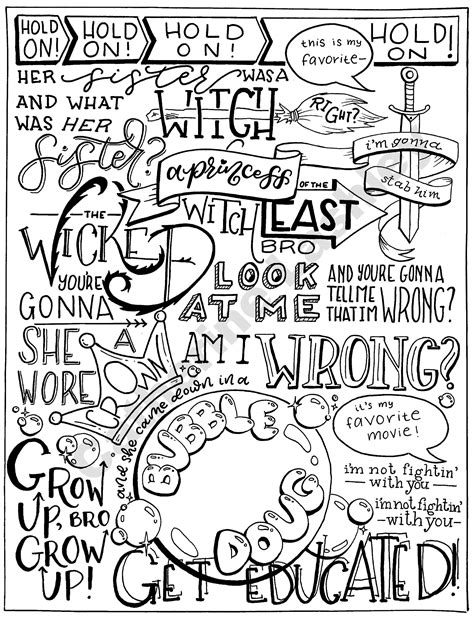 HOLD ON! HOLD ON! HOLD ON! HOLD ON!
this is my favorite-
HER sister WAS A
WITCH
RIGHT?
AND WHAT
WAS HER
sister?
a princess
i'm gonna
stab him
THE
WICKED
WITCH
OF THE
EAST
BRO
YOU'RE
GONNA
LOOK
AT ME
AND YOU'RE GONNA
TELL ME
THAT I'M WRONG?
AM I WRONG?
SHE
WORE
A
and she came down in a
BUBBLE
DOUG
it's my
favorite
movie!
GROW
UP, BRO
GROW
UP!
i'm not fightin'
-with you-
i'm not fightin'
-with you-
GET EDUCATED!